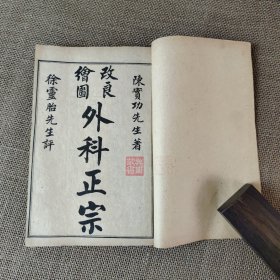 陳實功先生著
改良
繪圖
外科正宗
徐靈胎先生評